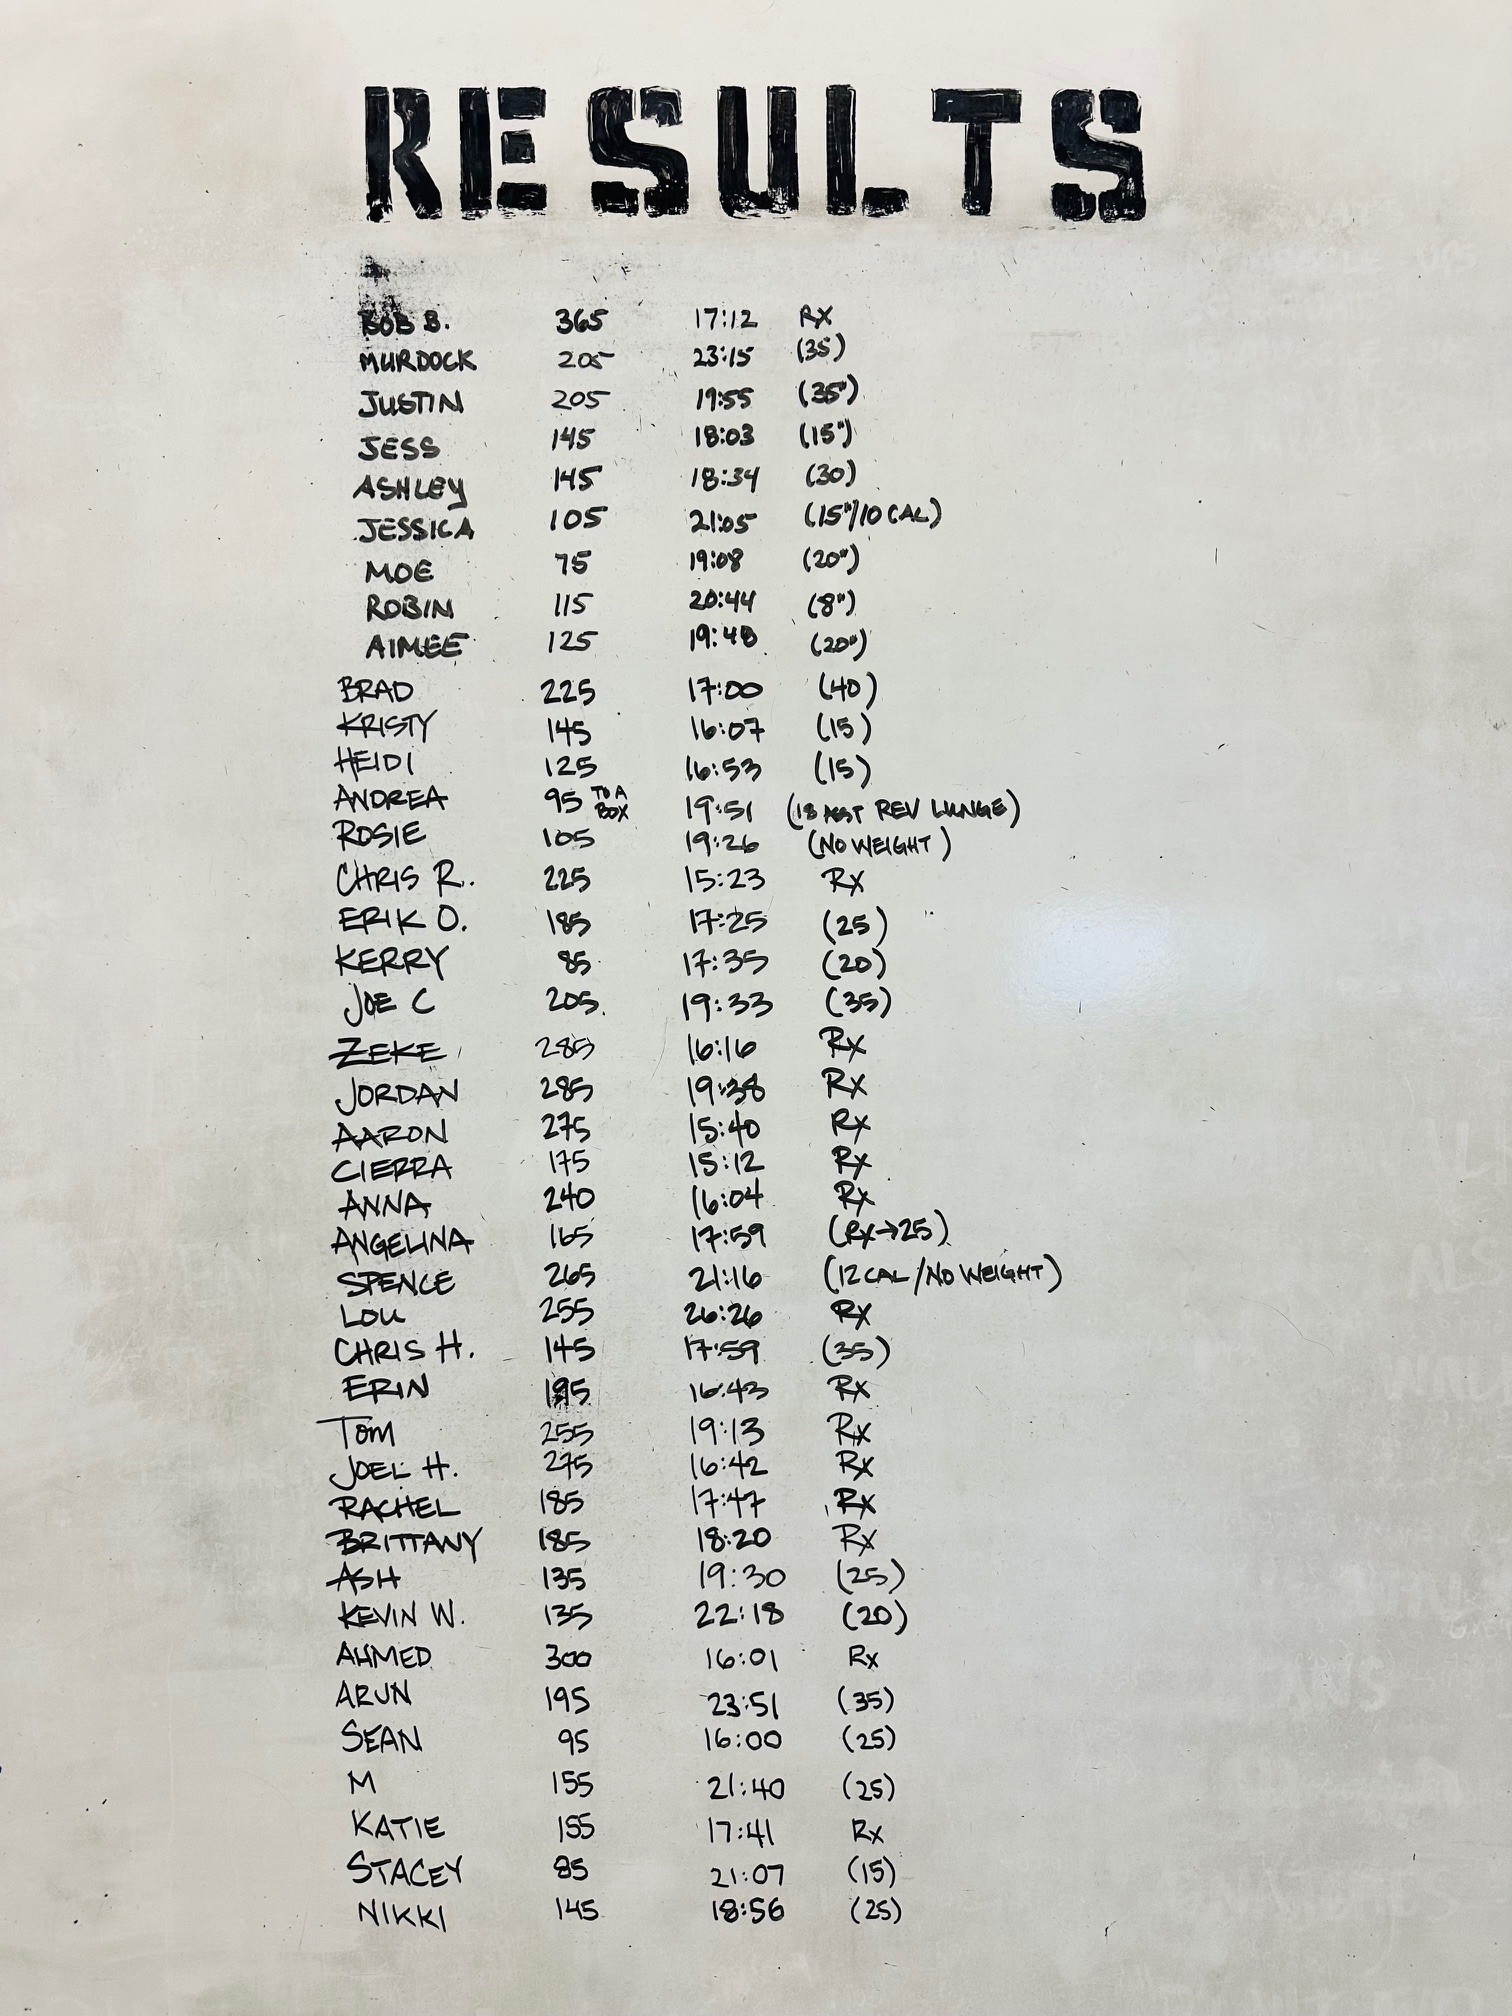 RESULTS
BOB B. 365 17:12 RX
MURDOCK 205 23:15 (35)
JUSTIN 205 19:55 (35")
JESS 145 18:03 (15")
ASHLEY 145 18:34 (30)
JESSICA 105 21:05 (15"/10 CAL)
MOE 75 19:08 (20")
ROBIN 115 20:44 (8")
AIMEE 125 19:48 (20")
BRAD 225 17:00 (40)
KRISTY 145 16:07 (15)
HEIDI 125 16:53 (15)
ANDREA 95 TO A BOX 19:51 (18 REV LUNGE)
ROSIE 105 19:26 (NO WEIGHT)
CHRIS R. 225 15:23 RX
ERIK O. 185 17:25 (25)
KERRY 85 17:35 (20)
JOE C 205 19:33 (35)
ZEKE 285 16:16 RX
JORDAN 285 19:38 RX
AARON 275 15:40 RX
CIERRA 175 15:12 RX
ANNA 240 16:04 RX
ANGELINA 165 17:59 (RX→25)
SPENCE 265 21:16 (12 CAL/NO WEIGHT)
LOU 255 26:26 RX
CHRIS H. 145 17:59 (35)
ERIN 195 16:43 RX
TOM 255 19:13 RX
JOEL H. 275 16:42 RX
RACHEL 185 17:47 RX
BRITTANY 185 18:20 RX
ASH 135 19:30 (25)
KEVIN W. 135 22:18 (20)
AHMED 300 16:01 RX
ARUN 195 23:51 (35)
SEAN 95 16:00 (25)
M 155 21:40 (25)
KATIE 155 17:41 RX
STACEY 85 21:07 (15)
NIKKI 145 18:56 (25)